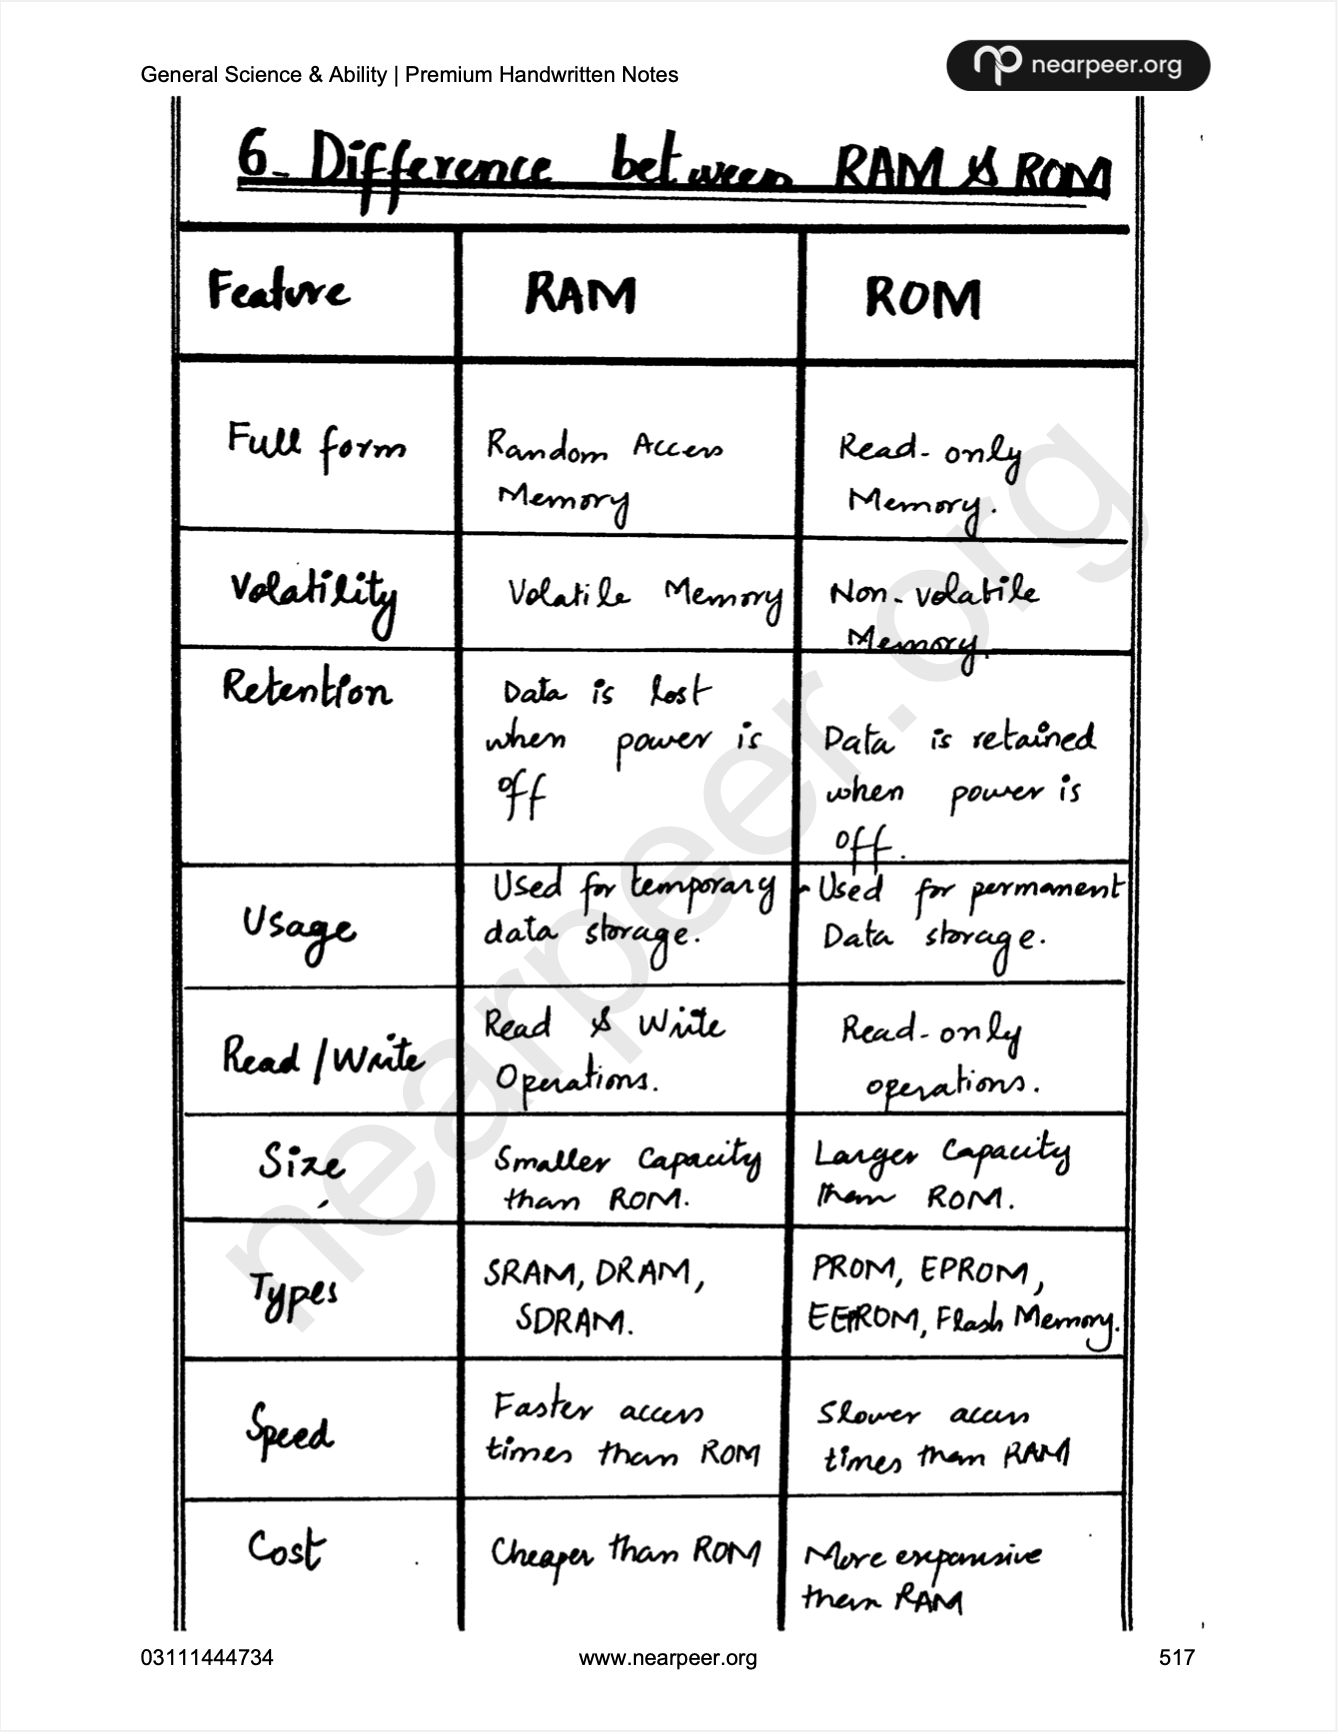 General Science & Ability | Premium Handwritten Notes
nearpeer.org
6. Difference between RAM & ROM
Feature
RAM
ROM
Full form
Random Access
Memory
Read-only
Memory.
Volatility
Volatile Memory
Non-volatile
Memory.
Retention
Data is lost
when power is
off
Data is retained
when power is
off.
Usage
Used for temporary
data storage.
- Used for permanent
Data storage.
Read/Write
Read & Write
Operations.
Read-only
operations.
Size
Smaller Capacity
than ROM.
Larger Capacity
than ROM.
Types
SRAM, DRAM,
SDRAM.
PROM, EPROM,
EEPROM, Flash Memory.
Speed
Faster access
times than ROM
Slower access
times than RAM
Cost
Cheaper than ROM
More expansive
than RAM
nearpeer.org
03111444734
www.nearpeer.org
517